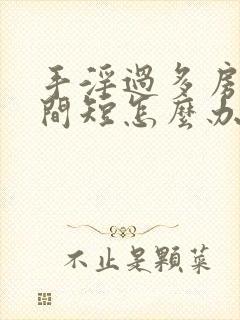 手淫過多房
間短怎麼办
不止是顆菜